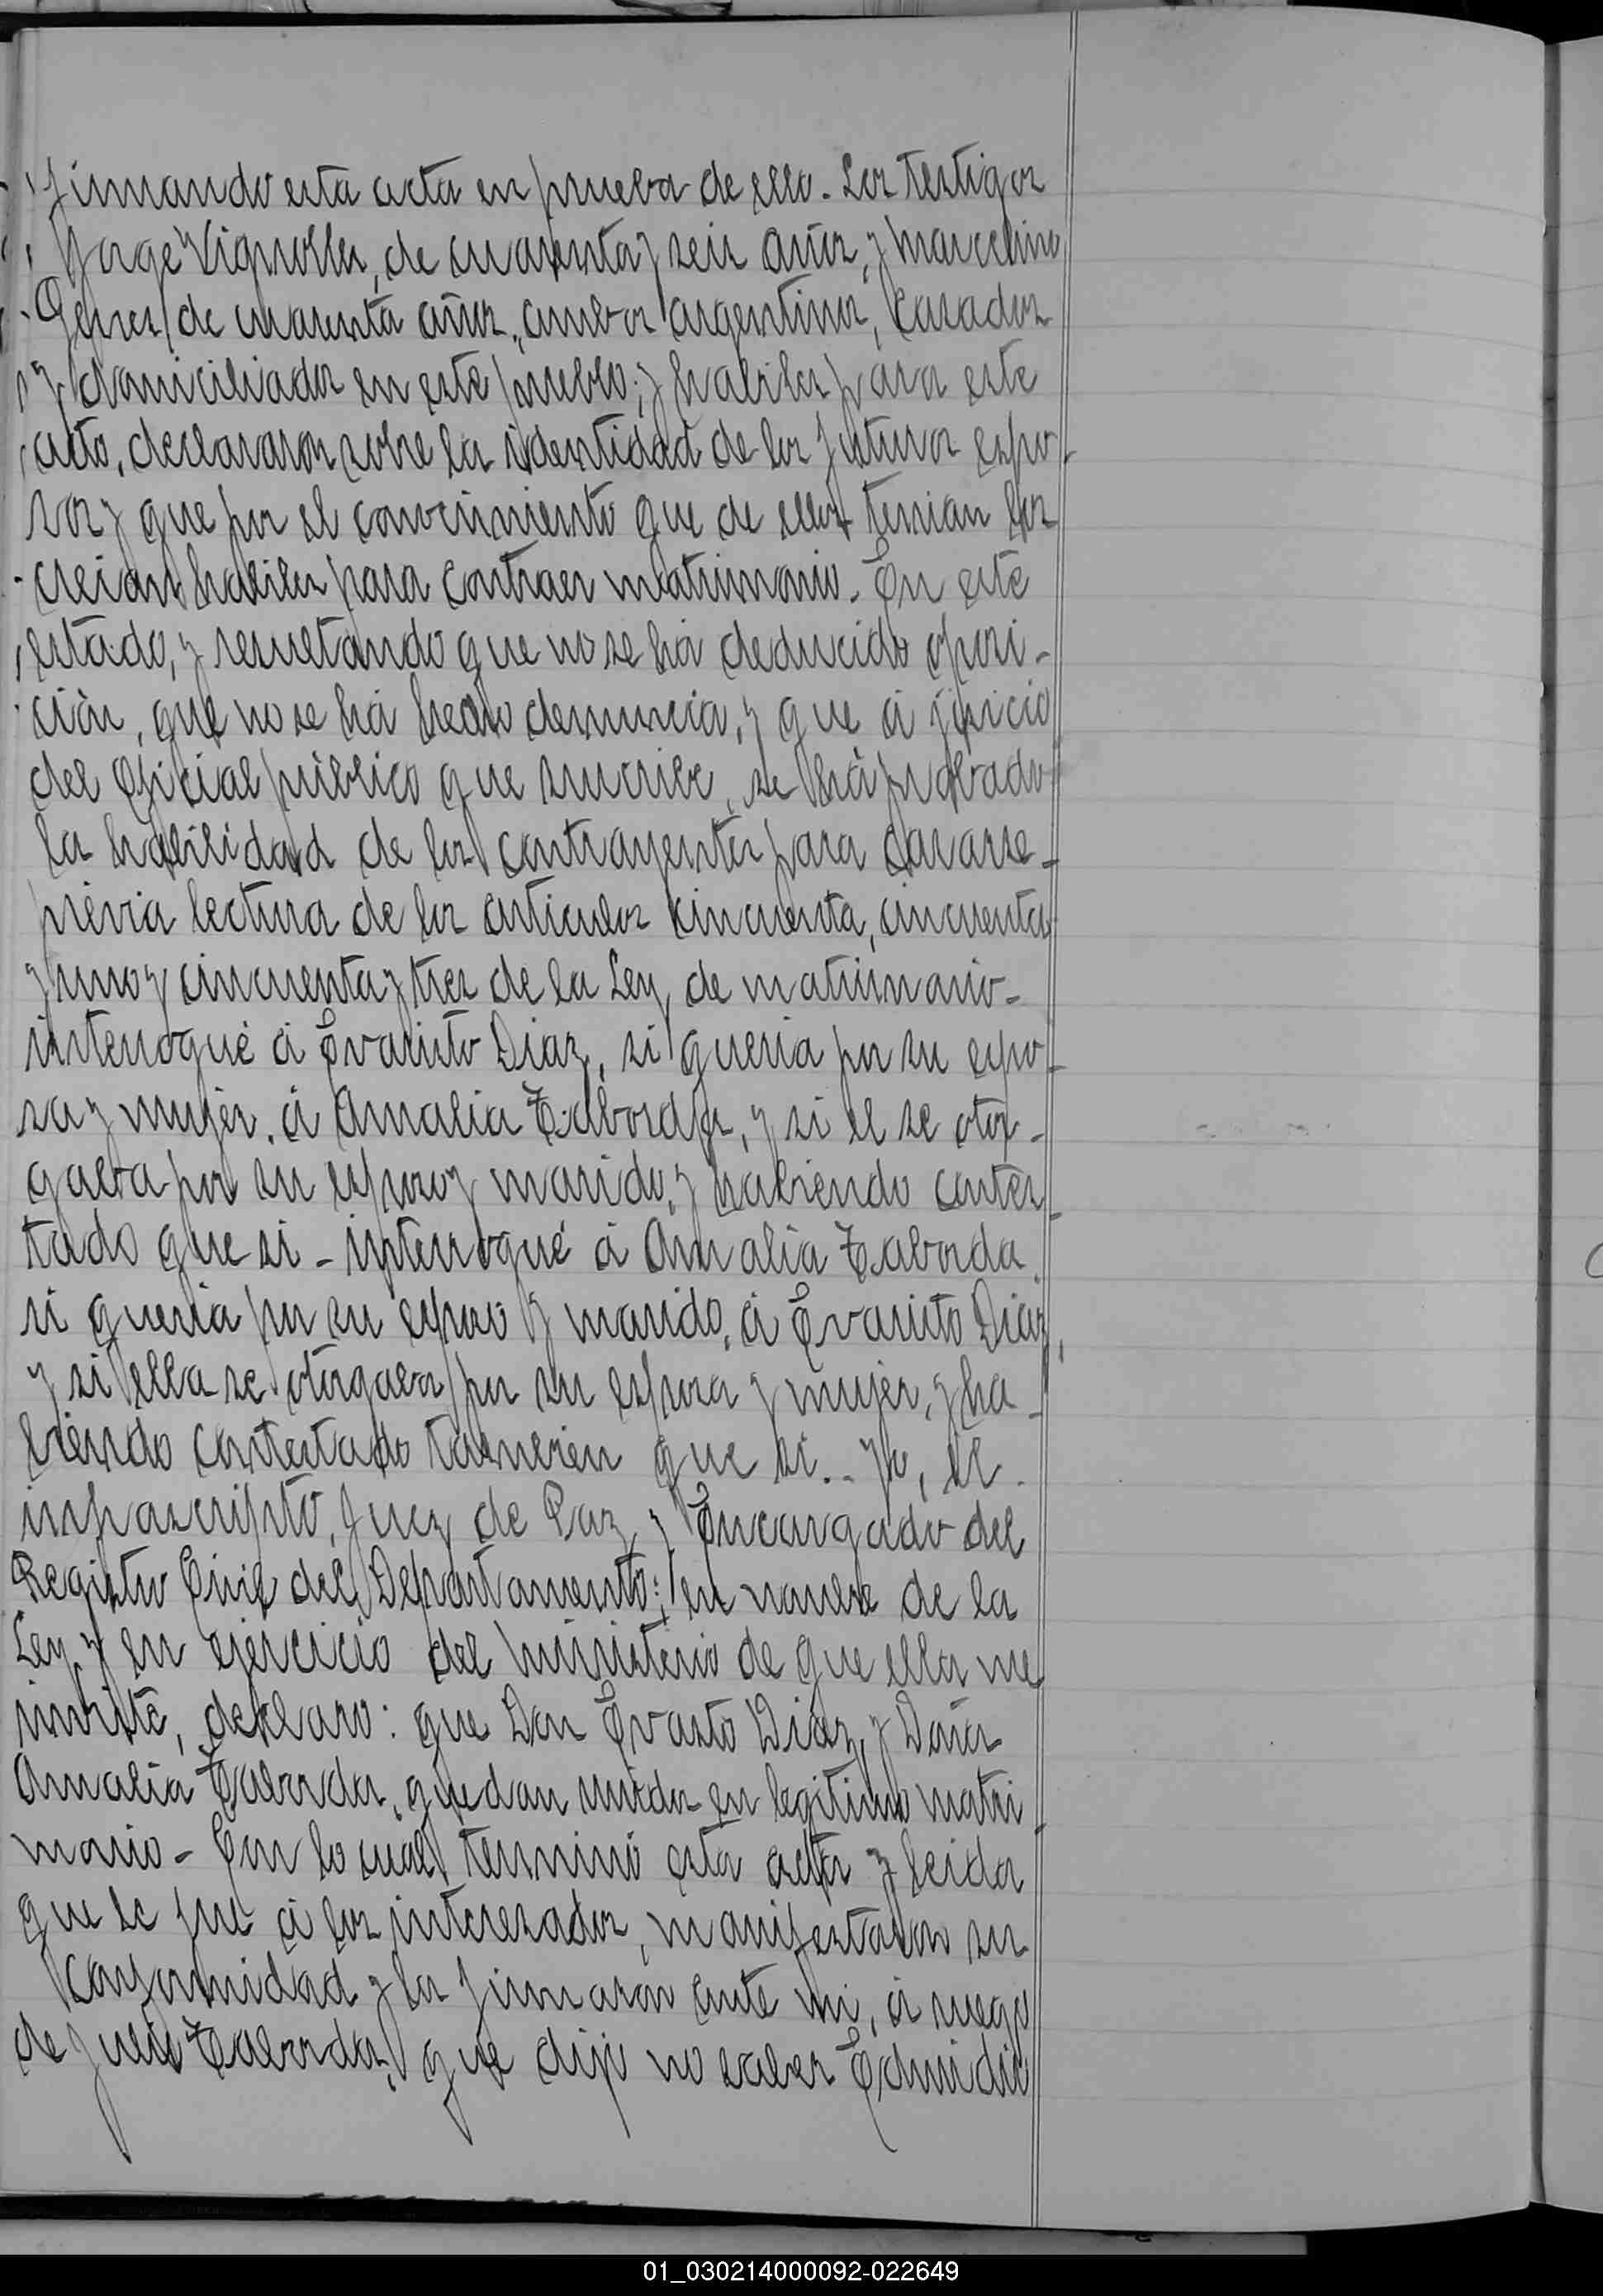 firmando esta acta en prueba de ello. Los testigos
Jorge Vignolles, de cuarenta y seis años, y Marcelino
de cuarenta años, ambos argentinos, casados
y domiciliados en este pueblo; y habiles para este
acto, declararon sobre la identidad de los futuros espo-
sos y que por el conocimiento que de ellos tenian los
creian habiles para contraer matrimonio. En este
estado, y resultando que no se há deducido oposi-
ciòn, que no se há hecho denuncia, y que á juicio
del Oficial público que suscribe, se há probado
la habilidad de los contrayentes para casarse-
prévia lectura de los articulos cincuenta, cincuenta
y uno y cincuenta y tres de la Ley de matrimonio-
interrogué á Evaristo Diaz, si queria por su espo-
sa y mujer, á Amalia Taborda, y si él se otor-
gaba por su esposo y marido, y habiendo contes-
tado que si - interrogué á Amalia Taborda
si queria por su esposo y marido, á Evaristo Diaz,
y si ella se otorgaba por su esposa y mujer, y ha-
biendo contestado tambien que si.. Yo, el
infrascripto, Juez de Paz y Encargado del
Registro Civil del Departamento: en nombre de la
Ley y en ejercicio del ministerio de que ella me
inviste, declaro: que Don Evasto Diaz, y Doña
Amalia Taborda, quedan unidos en legitimo matri-
monio - Con lo cual terminó esta acta y leida
que se fué á los interesados, manifestaron su
conformidad y la firmaron ante mi, á ruego
de Taborda, que dijo no saber Edmidio
01_030214000092-022649